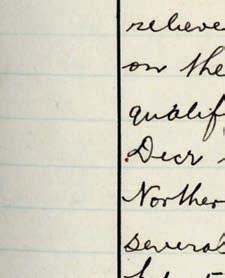 relieve
on the
qualif
Decr
Norther
several